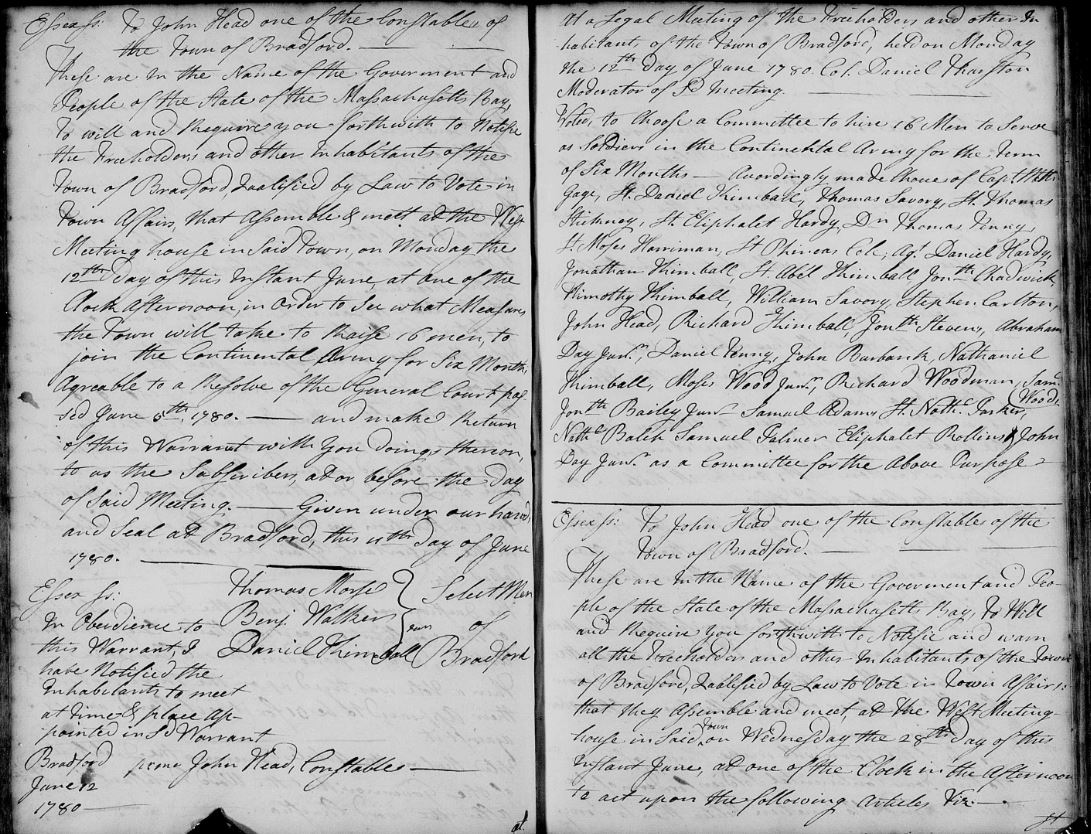 Essex ss: To John Head one of the Constables of
the Town of Bradford.
These are in the Name of the Goverment and
People of the State of the Massachusetts Bay,
To will and Require you forthwith to Notifie
the Freeholders and other Inhabitants of the
Town of Bradford Qualified by Law to Vote in
Town Affairs, that Assemble & meet at the West
Meeting house in Said Town, on Monday the
12th day of this Instant June, at one of the
Clock Afternoon, in Order to See what Measures
the Town will take to Raise 16 men, to
join the Continental Army for Six Months,
Agreable to a Resolve of the General Court pas-
sed June 5th 1780. — and make Return
of this Warrant with You doings thereon,
to us the Subscribers, at or before the Day
of Said Meeting. — Given under our hand,
and Seal at Bradford, this day of June
1780.
Thomas Morse
Benj. Walker
Daniel Kimball
Select Men
of
Bradford
Essex ss:
In Obendience to
this Warrant I
have Notified the
Inhabitants to meet
at Time & place Ap-
pointed in Sd Warrant
Bradford John Head, Constable
June 12
1780
at
at a Legal Meeting of the Freeholders and other In
habitants of the Town of Bradford, held on Monday
the 12th Day of June 1780. Col. Daniel Thurston
Moderator of Sd Meeting.
Voted, to Choose a Committee to hire 16 Men to Serve
as Soldiers in the Continental Army for the Term
of Six Months — Acordingly made Choice of Capt
Gage, Lt. Daniel Kimball, Thomas Savory, Lt. Thomas
Stickney, Lt Eliphalet Hardy, Dn Thomas Tenny
Lt Moses Harriman, Lt Phineas Cole, Daniel Hardy,
Jonathan Kimball, Lt Abel Kimball Jonth Chadwick
Timothy Kimball, William Savory, Stephen Carlton,
John Head, Richard Kimball Jonth Stevens, Abraham
Day Junr, Daniel Tenny, John Burbank Nathaniel
Kimball, Moses Wood Junr, Richard Woodman, Saml
Woods
Jonth Bailey Junr Samuel Adams Lt. Nathl Parker,
Nathl Balch Samuel Palmer Eliphalet Rollins & John
Day Junr as a Committee for the Above Purpose
Essex ss: To John Head one of the Constables of the
Town of Bradford.
These are In the Name of the Goverment and Peo-
ple of the State of the Massachusetts Bay, to Will
and Require You forthwith to Notifie and warn
all the Freeholders and other Inhabitants of the Town
of Bradford, Qualified by Law to Vote in Town Affairs:
that they Assemble and meet, at the West Meeting-
house in Said Town on Wednesday the 28th day of this
Instant June, at one of the Clock in the Afternoon
to act upon the following Articles Viz.